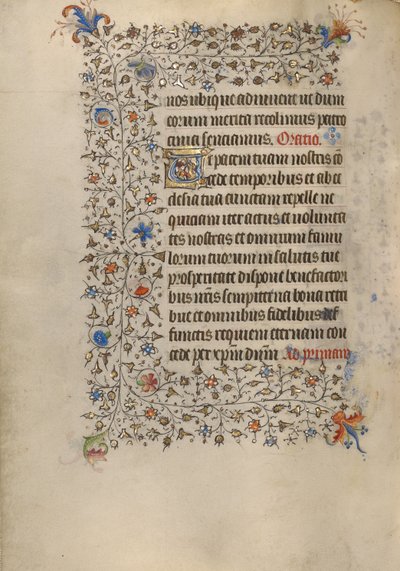 nos ubique adiuuent ut dum
eorum merita recolimus patro
cinia senciamus. Oratio.
Et pacem tuam nostris cō
cede temporibus et ab ec
clesia tua cunctam repelle ne
quiciam iter actus et volunta
tes nostras et omnium famu
lorum tuorum in salutis tue
prosperitate dispone benefactori
bus nr̄is sempiterna bona retri
bue et omnibus fidelibus def
functis requiem eternam con
cede per xp̄m dn̄m Ad primam